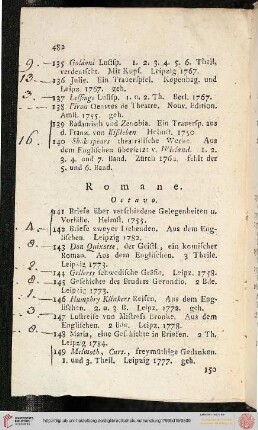 482
9. 135 Goldoni Lustsp. 1. 2. 3. 4. 5. 6. Theil,
verdeutscht. Mit Kupf. Leipzig 1767.
13. 136 Julie. Ein Trauerspiel. Kopenhag. und
Leipz. 1767. geh.
3. 137 Lessings Lustsp. 1. u. 2. Th. Berl. 1767.
138 Piron Oeuvres de Theatre. Nouv. Edition.
Amst. 1755. geh.
139 Radamist und Zenobia. Ein Trauersp. aus
d. Franz. von Helmst. 1750
16. 140 Shakespears theatralische Werke. Aus
dem Englischen übersetzt v. Wieland. 1. 2.
3. 4. und 7. Band. Zürch 1762. fehlt der
5. und 6. Band.
Romane.
Octavo.
141 Briefe über verschiedene Gelegenheiten u.
Vorfälle. Helmst. 1755.
142 Briefe zweyer Liebenden. Aus dem Eng-
lischen. Leipzig 1782.
143 Don Quixotte, der Geistl, ein komischer
Roman. Aus dem Englischen. 3 Theile.
Leipzig 1773.
144 Gellerts schwedische Gräfin. Leipz. 1758.
8. 145 Geschichte des Bruders Gerundio. 2 Bde.
Leipzig 1773.
146 Humphry Klinkers Reisen. Aus dem Eng-
lischen. 2. u. 3 B. Leipz. 1772. geh.
147 Lustreise von Mistress Brooke. Aus dem
Englischen. 2 Bde. Leipz. 1778.
148 Maria, eine Geschichte in Briefen. 2 Th.
Leipzig 1784.
149 Melmoth, Curt., freymüthige Gedanken.
1. und 3. Theil. Leipzig 1777. geh.
150